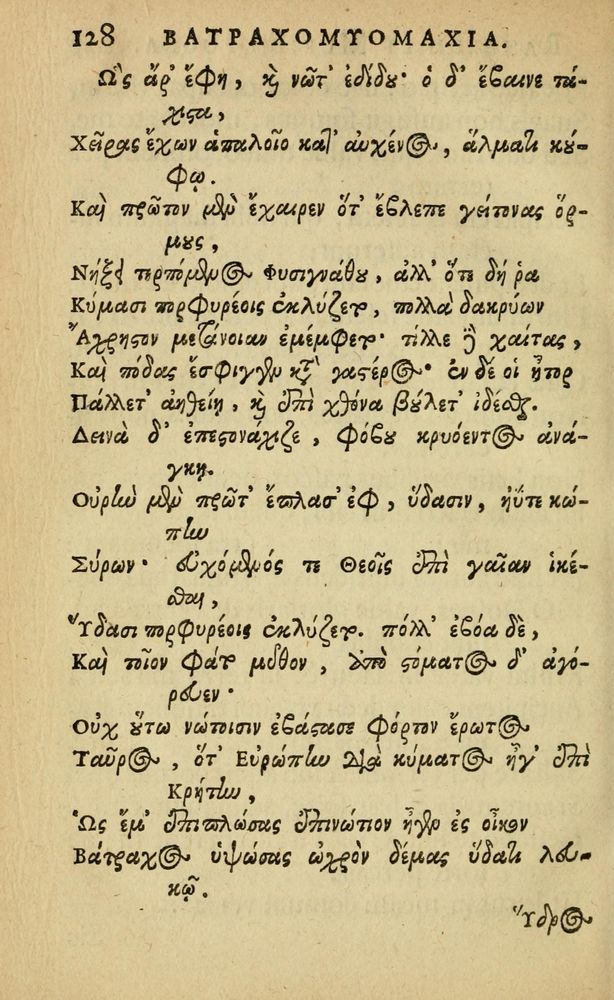 128 ΒΑΤΡΑΧΟΜΥΟΜΑΧΙΑ.
Ὣς ἄρ' ἔφη, καὶ νῶτ' ἐδίδου· ὁ δ' ἔβαινε τά-
χιστα,
Χεῖρας ἔχων ἁπαλοῖο κατ' αὐχένος, ἅλματι κού-
φῳ.
Καὶ πρῶτον μὲν ἔχαιρεν ὅτ' ἔβλεπε γείτονας ὅρ-
μους,
Νήξει τερπόμενος Φυσιγνάθου, ἀλλ' ὅτε δή ῥα
Κύμασι πορφυρέοις ἐκλύζετο, πολλὰ δακρύων
Ἄχρηστον μετάνοιαν ἐμέμφετο· τίλλε δὲ χαίτας,
Καὶ πόδας ἔσφιγγεν κατὰ γαστέρος· ἐν δέ οἱ ἦτορ
Πάλλετ' ἀηθείῃ, καὶ ἐπὶ χθόνα βούλετ' ἱδέσθαι.
Δεινὰ δ' ἐπεστονάχιζε, φόβου κρυόεντος ἀνά-
γκῃ.
Οὐρὴν μὲν πρῶτ' ἔπλασ' ἐφ, ὕδασιν, ἠΰτε κώ-
πην
Σύρων· εὐχόμενός τε Θεοῖς ἐπὶ γαῖαν ἱκέ-
σθαι,
Ὕδασι πορφυρέοις ἐκλύζετο. πόλλ' ἐβόα δὲ,
Καὶ τοῖον φάτο μῦθον, ὑπὸ στόματος δ' ἀγό-
ρευεν·
Οὐχ οὕτω νώτοισιν ἐβάστασε φόρτον ἔρωτος
Ταῦρος, ὅτ' Εὐρώπην διὰ κύματος ἦγ' ἐπὶ
Κρήτην,
Ὡς ἔμ' ἐπιπλώσας ἐπινώτιον ἦγεν ἐς οἶκον
Βάτραχος ὑψώσας ὠχρὸν δέμας ὕδατι λευ-
κῷ.
Ὕδρος